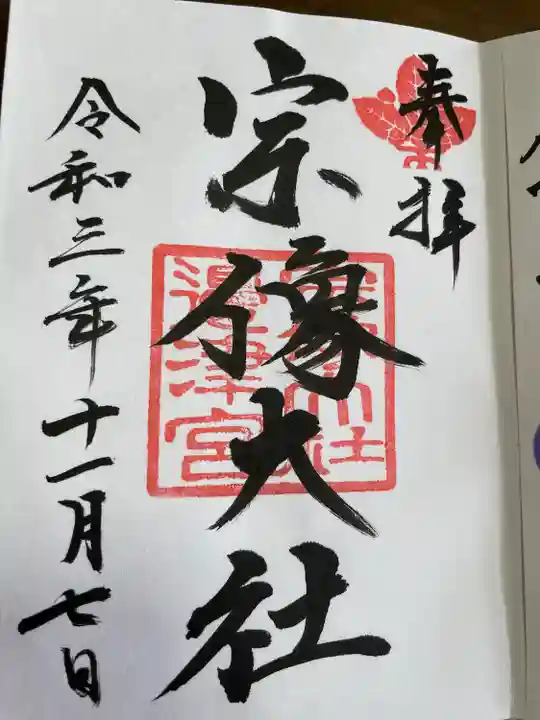 奉拝
宗像大社
宗像大社
邊津宮
令和三年十一月七日